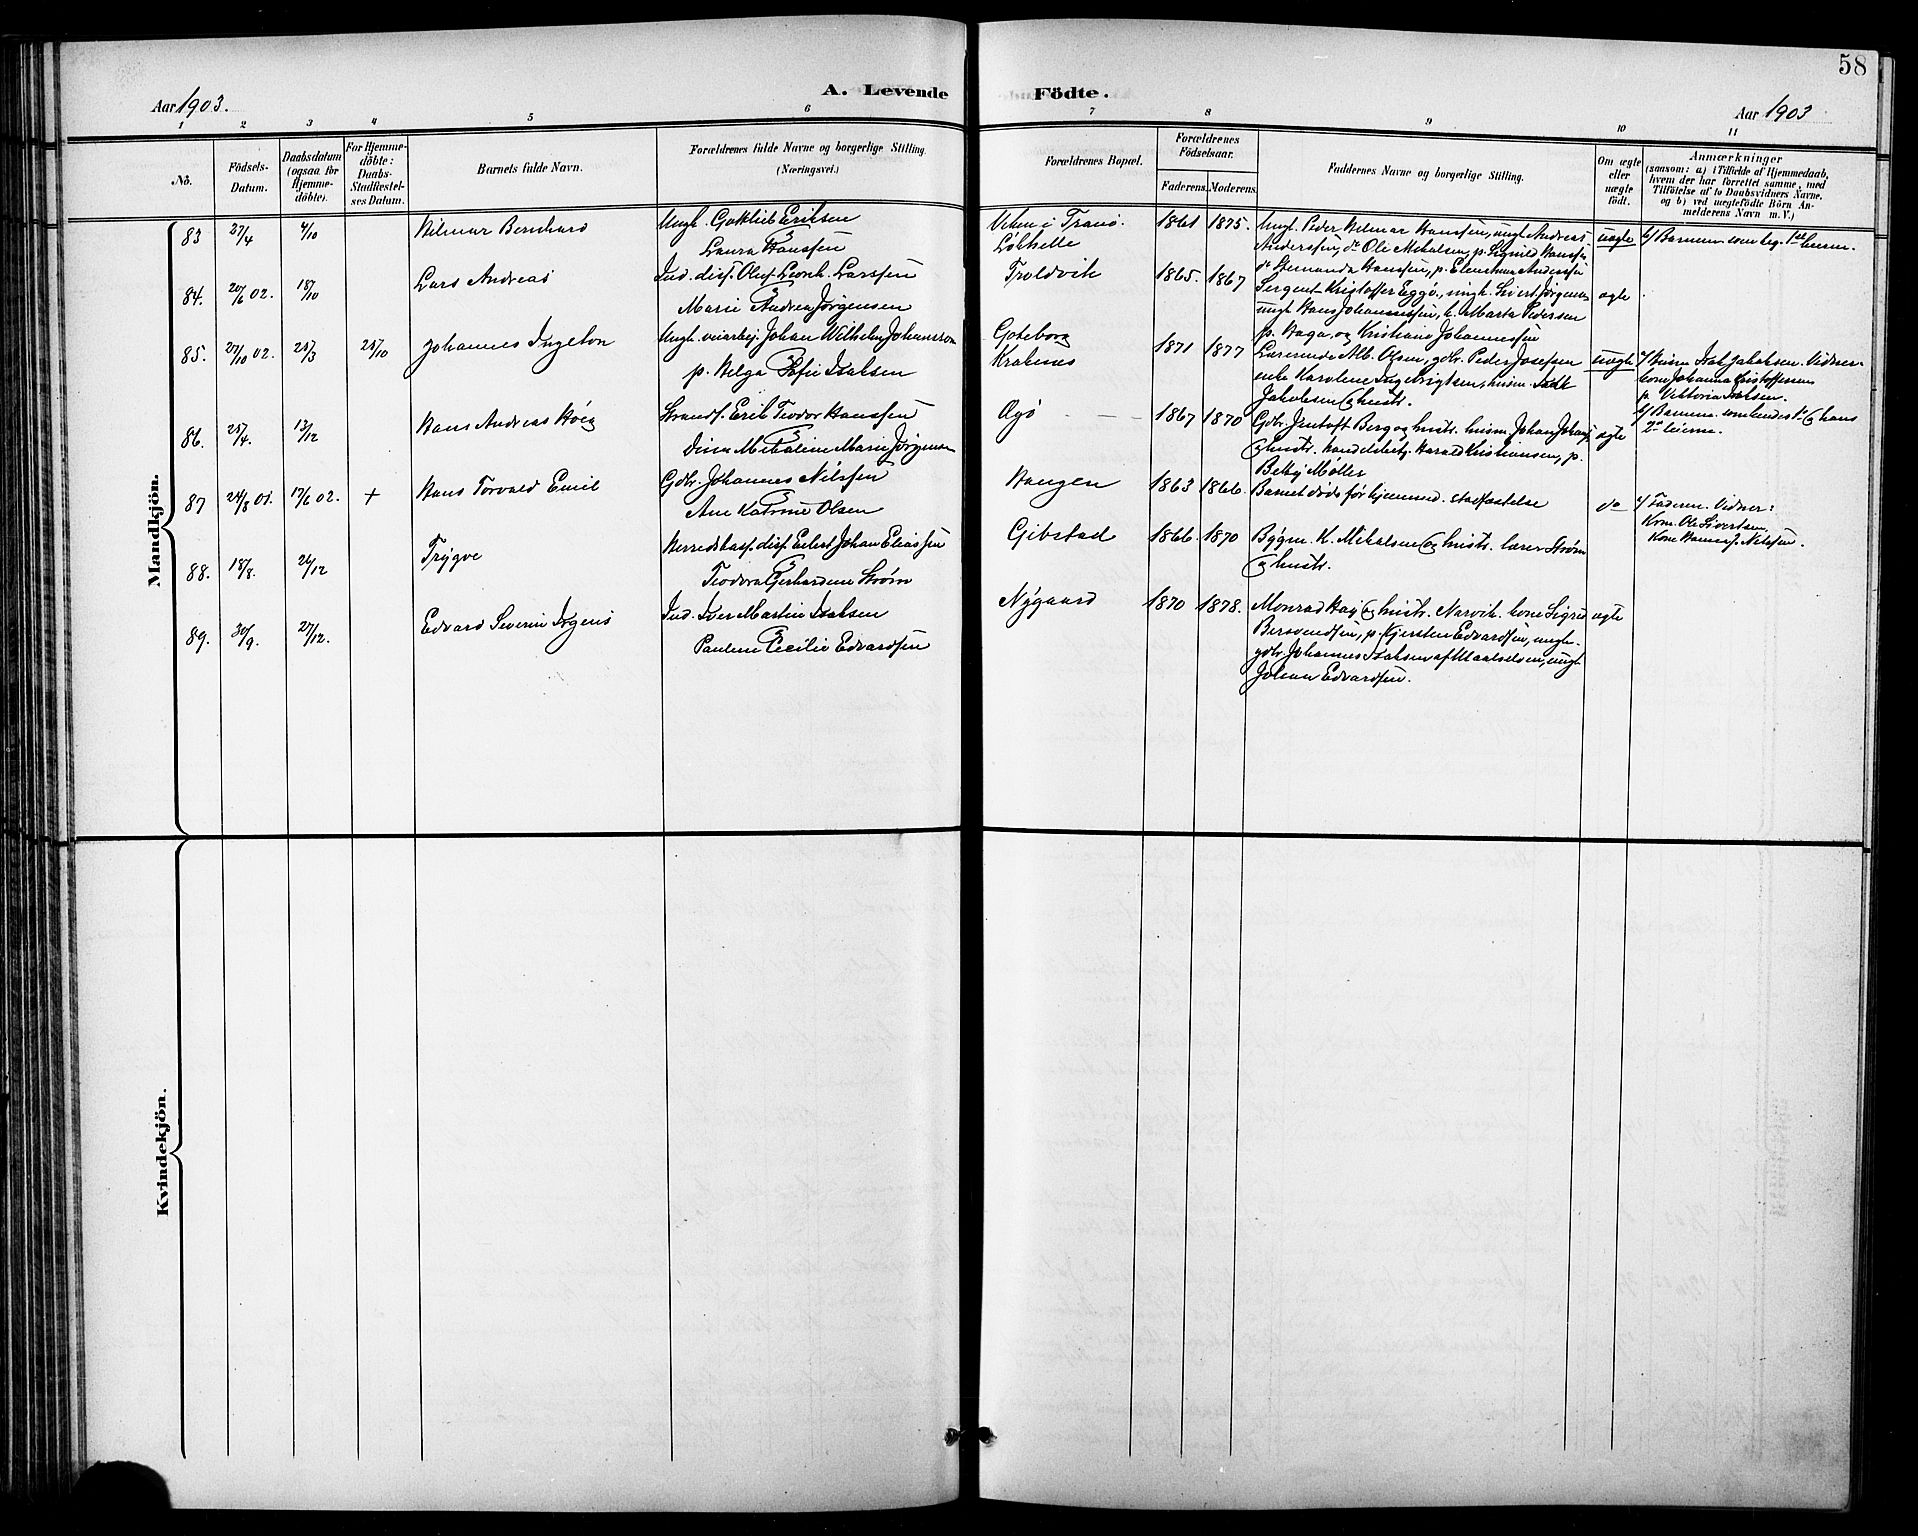 58
Aar 1903.
A. Levende Födte.
Aar 1903
1 2 3 4 5 6 7 8 9 10 11
No.
Födsels-
Datum.
Daabsdatum
(ogsaa for
Hjemme-
döbte).
For Hjemme-
döbte:
Daabs-
Stadfæstel-
ses Datum.
Barnets fulde Navn.
Forældrenes fulde Navne og borgerlige Stilling.
(Næringsvei.)
Forældrenes Bopæl.
Forældrenes
Födselsaar.
Faderens. Moderens.
Faddernes Navne og borgerlige Stilling.
Om ægte
eller
uægte
födt.
Anmærkninger
(saasom: a) i Tilfælde af Hjemmedaab,
hvem der har forrettet samme, med
Tilföielse af to Daabsvidners Navne,
og b) ved uægtefödte Börn An-
melderens Navn m. V.)
Mandkjön.
83 27/4 4/10 Hilmar Bernhard
Ungk. Gottlieb Eriksen
Laura Hanssen
Viken i Tranø.
Løkhelle
1861 1875.
Ungk. Peder Hilmar Hanssen, ungk Andreas
Anderssen, do Ole Mikalsen, p. Signild Hanssen
uægte
b/ Barnem. som beg. 1ste leierm.
84. 20/6 02. 18/10 Lars Andreas
Ind. disp. Oluf Leonh. Larssen
Marie Andrea Jørgensen
Troldvik 1865. 1867
Sergent Kristoffer Eggø, ungk. Sivert Jørgensen
ungk Hans Johannessen, k. Marta Pedersen
p. Haga og Kristiane Johannessen
ægte
85. 27/10 02. 25/3 25/10 Johannes Ingeton
Ungk. veiarbej. Johan Wilhelm Johansson
p. Helga Sofie Isaksen
Gøteborg
Kraknes
1871 1877
Lærerinde Alb. Olsen, gdbr. Peder Josefsen
enke Karolene Ingebrigtsen, husm. Isak
Jakobsen & hustr.
uægte
a/ Husm. Isak Jakobsen. Vidner
kone Johanna Kristoffersen
p. Viktoria Isaksen.
b/ Barnem. som hendes 1ste & hans
2det leierm.
86. 25/4. 13/12 Hans Andreas Høeg
Strands. Erik Teodor Hanssen
Dina Mekaline Marie Jørgensen
1867 1870
Gdbr. Jentoft Berg og hustr. husm. Johan Johans.
& hustr. handelsbetj. Harald Kristiansen, p.
Betsy Møller
ægte
87 24/8 01. 17/6 02. + Hans Torvald Emil
Gdbr. Johannes Nilssen
Ane Katrine Olsen
Haugen 1863 1866.
Barnet døds før hjemmed. stadfæstelse
do
a/ Faderen. Vidner:
Kone Ole Sivertsen,
Kone Hans J. Nilssen.
88. 18/8. 26/12 Trygve
Herredskasf. disp. Eilert Johan Eliassen
Teodora Gerhardine Strøm
Gibstad 1866 1870
Bygm. K. Mikalsen & hustr. lærer Strøm
& hustr.
89. 30/9. 27/12. Edvard Severin Irgens
Ind. Iver Martin Isaksen
Pauline Cecilie Edvardsen
Nygaard 1870 1878.
Monrad Høj & hustr. Narvik. kone Sigrid
Bersvendsen, p. Kjersten Edvardsen, ungk.
gdbr. Johannes Isaksen af Maalselven, ungk
Johan Edvardsen.
ægte
Kvindekjön.